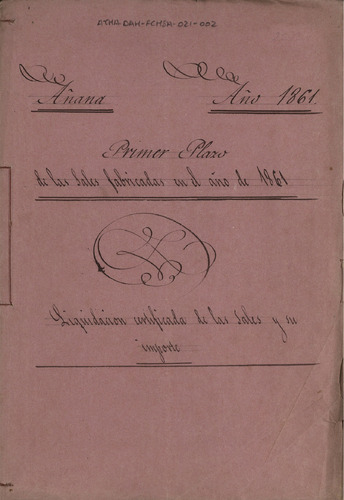 ATHA-DAH-FCMSM-021-002
Añana Año 1861.
Primer Plazo
de las Sales fabricadas en el año de 1861
Liquidacion certificada de las Sales y su
importe